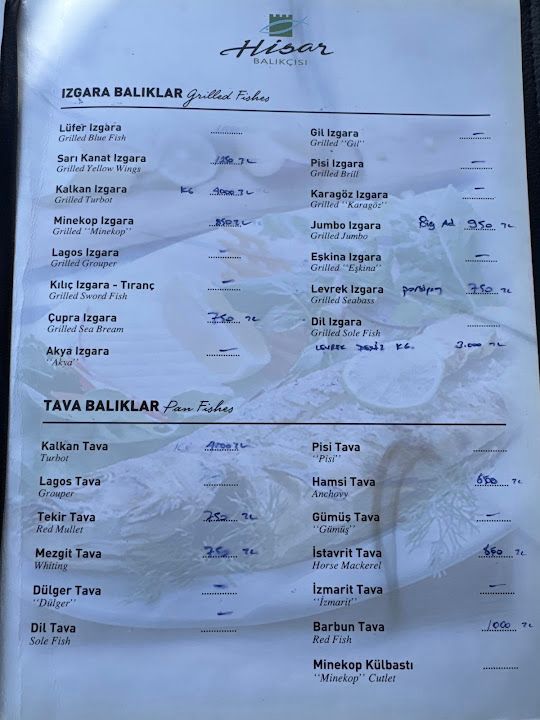 Hisar
BALIKÇISI
IZGARA BALIKLAR Grilled Fishes
Lüfer Izgara
Grilled Blue Fish
Sarı Kanat Izgara TL
Grilled Yellow Wings
Kalkan Izgara KG 4000 TL
Grilled Turbot
Minekop Izgara 850 TL
Grilled "Minekop"
Lagos Izgara –
Grilled Grouper
Kılıç Izgara - Tıranç –
Grilled Sword Fish
Çupra Izgara 750 TL
Grilled Sea Bream
Akya Izgara –
"Akya"
Gil Izgara –
Grilled "Gil"
Pisi Izgara –
Grilled Brill
Karagöz Izgara –
Grilled "Karagöz"
Jumbo Izgara Ad 950 TL
Grilled Jumbo
Eşkina Izgara –
Grilled "Eşkina"
Levrek Izgara porsiyon 750 TL
Grilled Seabass
Dil Izgara
Grilled Sole Fish
LEVREK DENİZ KG. 3.000 TL
TAVA BALIKLAR Pan Fishes
Kalkan Tava KG 4000 TL
Turbot
Lagos Tava
Grouper
Tekir Tava 750 TL
Red Mullet
Mezgit Tava 750 TL
Whiting
Dülger Tava –
"Dülger"
Dil Tava –
Sole Fish
Pisi Tava
"Pisi"
Hamsi Tava 650 TL
Anchovy
Gümüş Tava –
"Gümüş"
İstavrit Tava 650 TL
Horse Mackerel
İzmarit Tava –
"İzmarit"
Barbun Tava 1000 TL
Red Fish
Minekop Külbastı
"Minekop" Cutlet